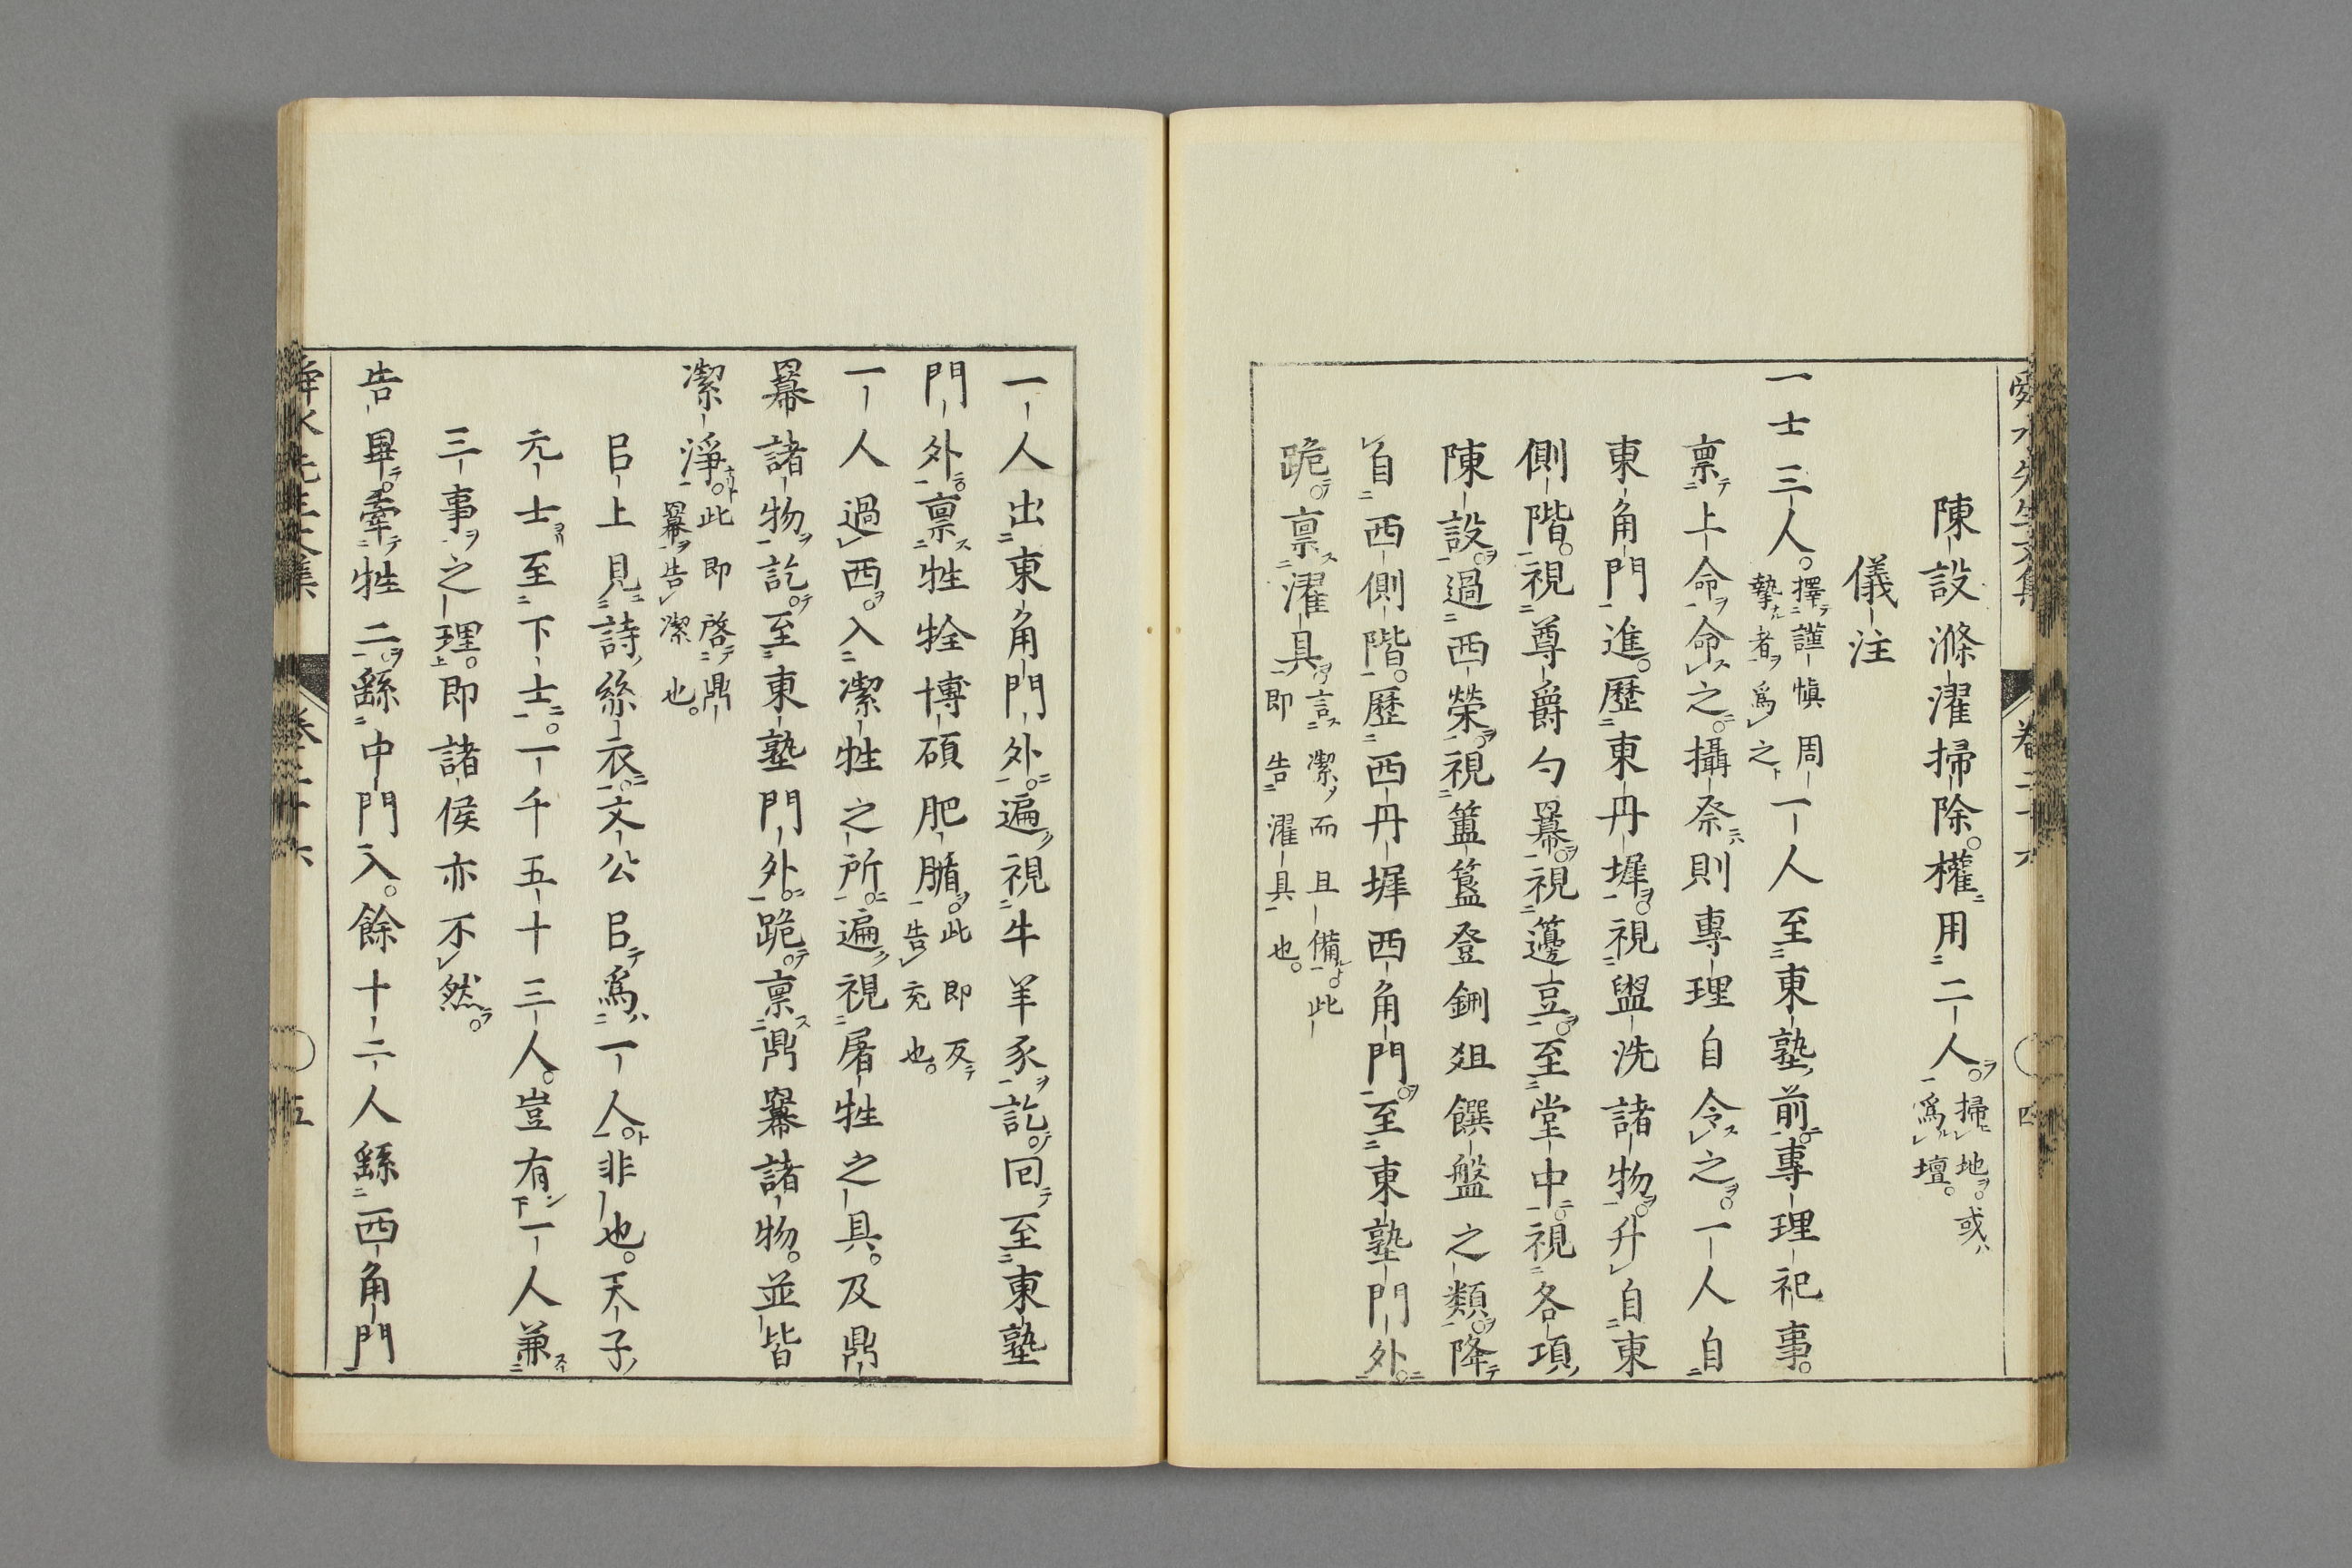 舜水先生文集 卷二十六 四
陳設滌濯掃除。權用二人。掃地。或爲壇。
儀注
一士三人。擇謹愼周摯者爲之一人至東塾前。專理祀事。
禀上命命之。攝祭則專理自令之。一人自
東角門進。歷東丹墀。視盥洗諸物。升自東
側階。視尊爵勺羃。視籩豆。至堂中。視各項
陳設。過西榮。視簠簋登鉶俎饌盤之類。降
自西側階。歷西丹墀西角門。至東塾門外。
跪。禀濯具。言潔而且備。此即告濯具也。
一人出東角門外。遍視牛羊豕訖。回至東塾
門外。禀牲牷博碩肥腯。此即反告充也。
一人過西。入潔牲之所。遍視屠牲之具。及鼎
羃諸物訖。至東塾門外。跪。禀鼎羃諸物。並皆
潔淨。此即啓鼎羃告潔也。
㠯上見詩絲衣。文公㠯爲一人。非也。天子
元士至下士。一千五十三人。豈有一人兼
三事之理。即諸侯亦不然。
告畢。牽牲二。繇中門入。餘十二人繇西角門
舜水先生文集 卷二十六 五